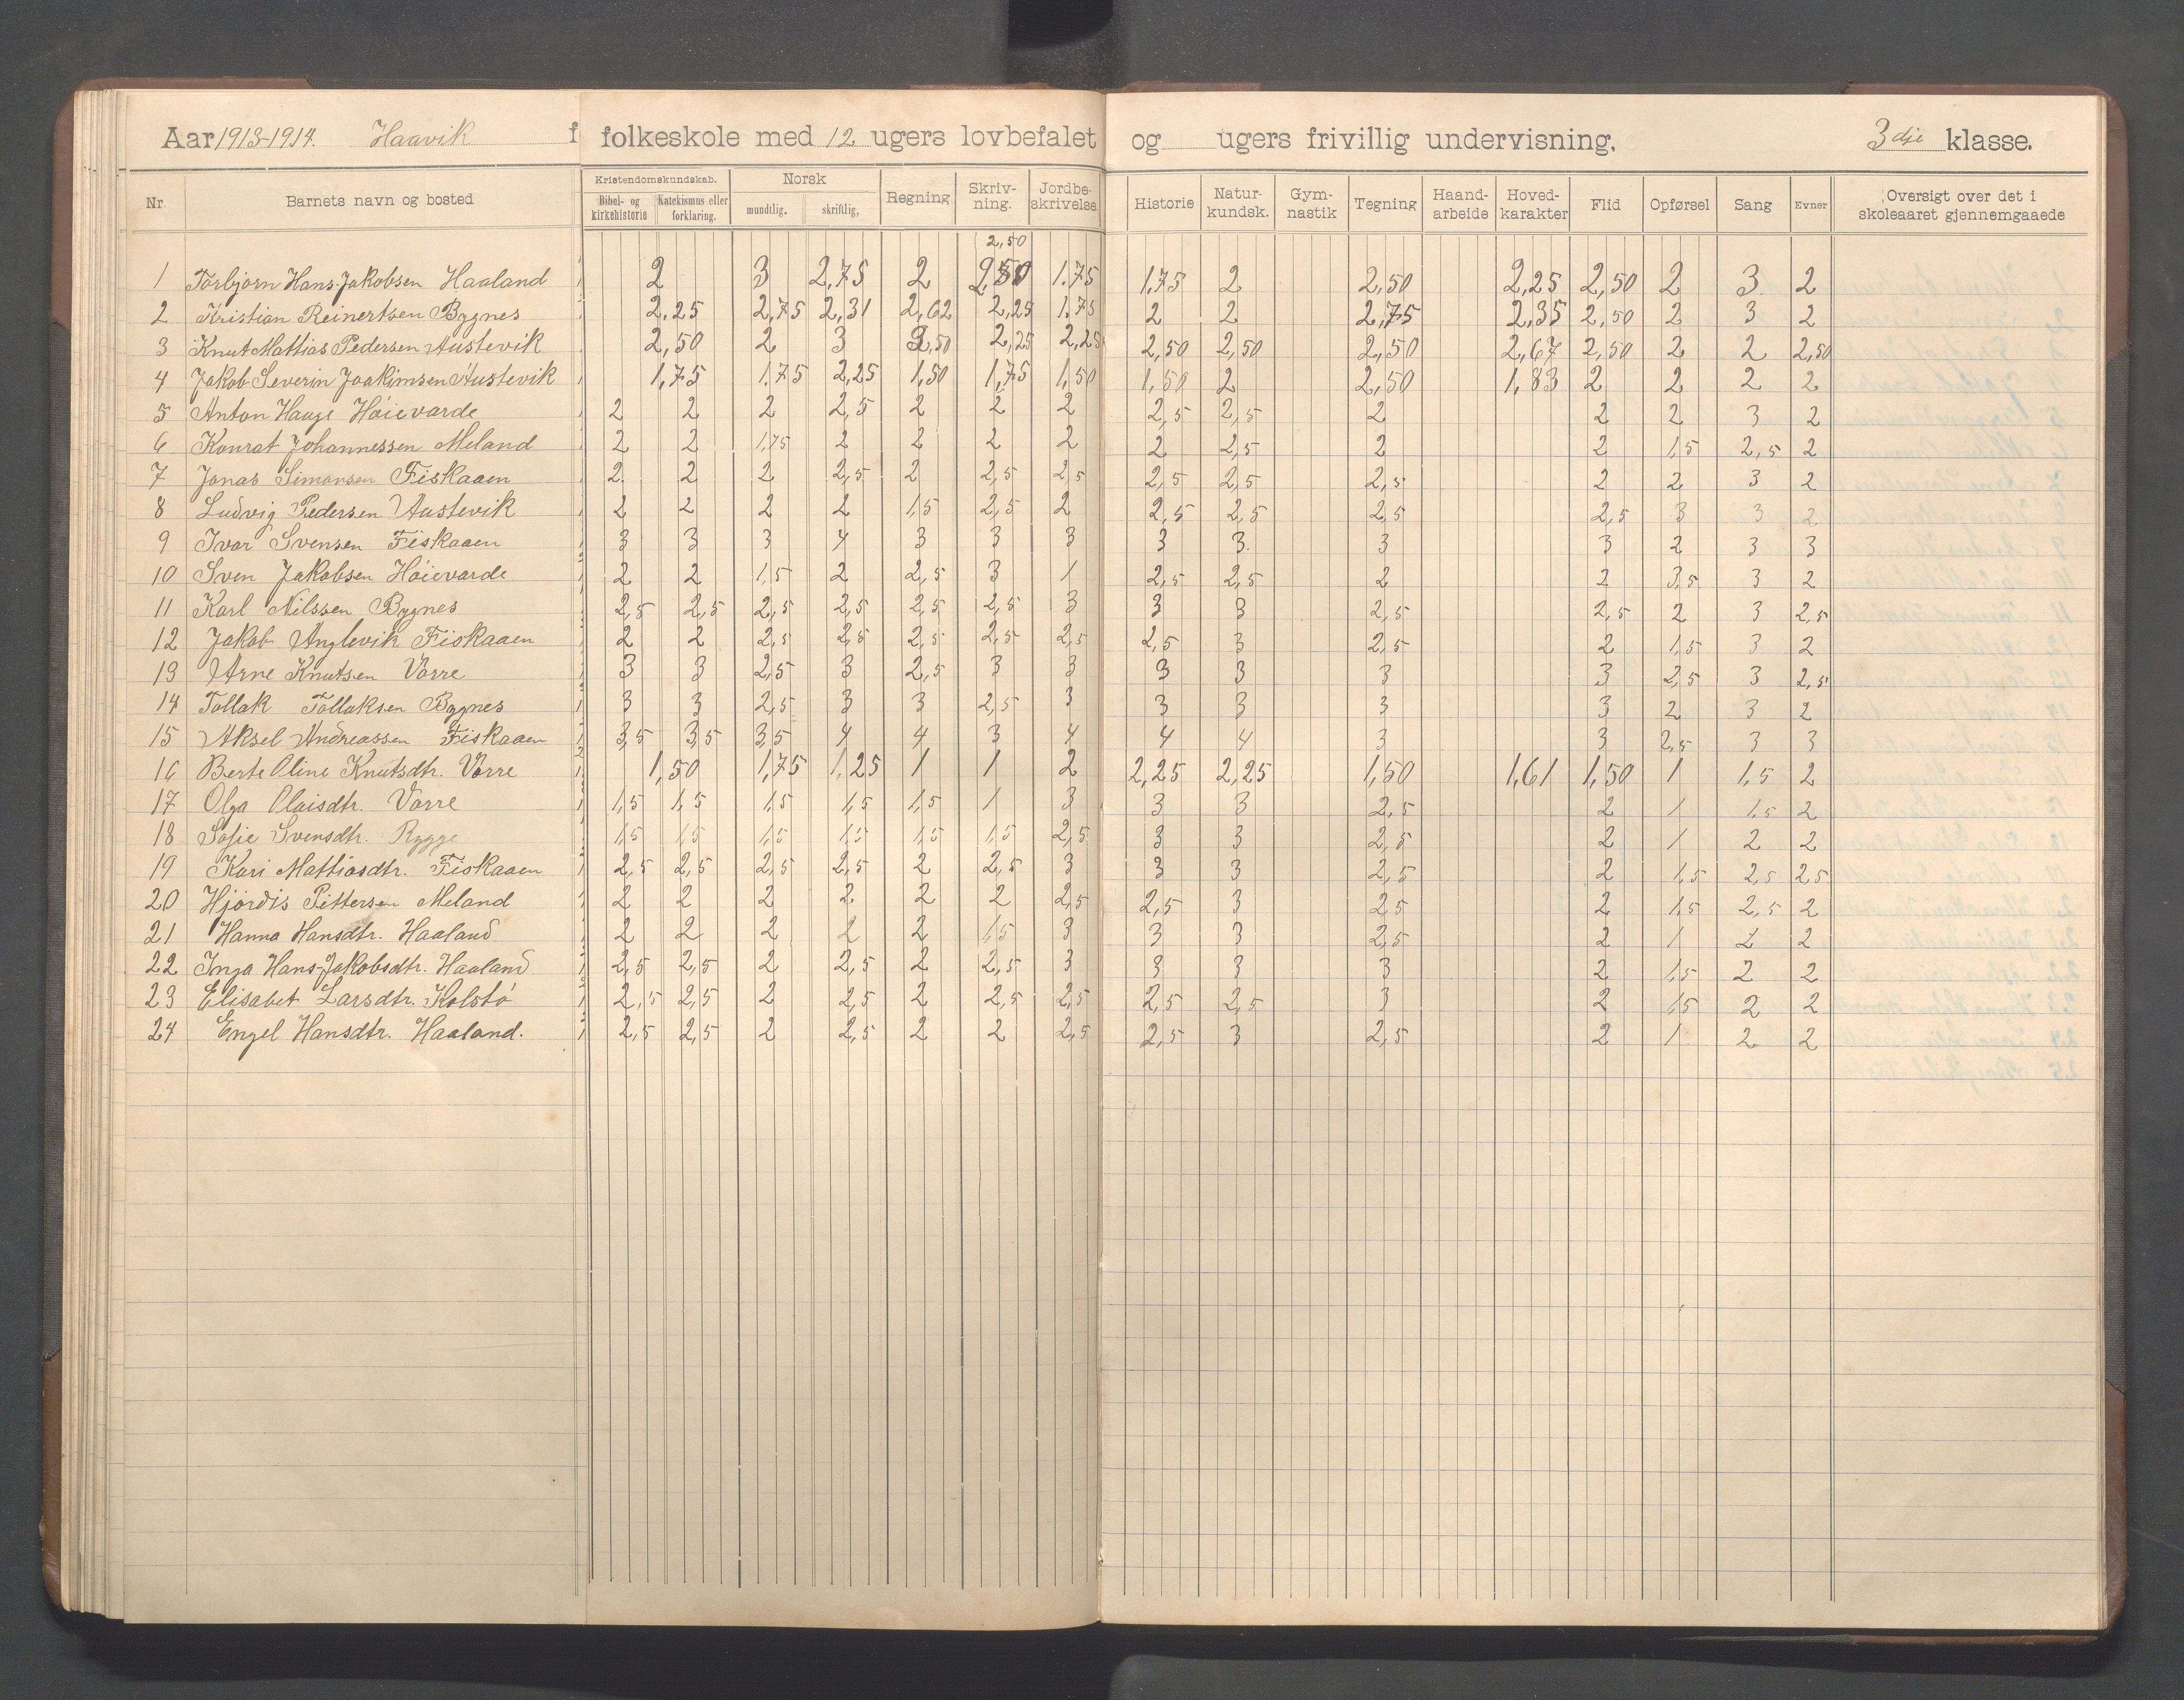 Aar 1913-1914. Haavik f folkeskole med 12 ugers lovbefalet og ugers frivillig undervisning. 3dje klasse.
Nr. Barnets navn og bosted Kristendomskundskab. Bibel- og kirkehistorie Katekismus eller forklaring. Norsk mundtlig. skriftlig. Regning Skriv-ning. Jordbe-skrivelse. Historie Natur-kundsk. Gym-nastik Tegning Haand-arbeide Hoved-karakter Flid Opførsel Sang Evner Oversigt over det i skoleaaret gjennemgaaede
2,50
1 Torbjørn Hans-Jakobsen Haaland 2 3 2,75 2 2,50 1.75 1,75 2 2,50 2,25 2,50 2 3 2
2 Kristian Reinertsen Bygnes 2,25 2,75 2,31 2,62 2,25 1.75 2 2 2,75 2,35 2,50 2 3 2
3 Knut Mattias Pedersen Austevik 2,50 2 3 2,50 2,25 2,25 2,50 2,50 2,50 2,67 2,50 2 2 2,50
4 Jakob Severin Joakimsen Austevik 1,75 1.75 2,25 1,50 1,75 1,50 1,50 2 2,50 1,83 2 2 2 2
5 Anton Hauge Høievarde 2 2 2 2,5 2 2 2 2,5 2,5 2 2 2 3 2
6 Konrat Johannessen Meland 2 2 1,75 2 2 2 2 2 2,5 2 2 1,5 2,5 2
7 Jonas Simonsen Fiskaaen 2. 2 2 2,5 2 2,5 2,5 2,5 2,5 2,5 2 2 3 2
8 Ludvig Pedersen Austevik 2 2 2 2 1,5 2,5 2 2,5 2,5 2,5 2,5 3 3 2
9 Ivar Svensen Fiskaaen 3 3 3 4 3 3 3 3 3. 3 3 2 3 3
10 Sven Jakobsen Høievarde 2 2 1,5 2 2,5 3 1 2,5 2,5 2 2 3,5 3 2
11 Karl Nilssen Bygnes 2,5 2,5 2,5 2,5 2,5 2,5 3 3 3 2,5 2,5 2 3 2,5
12 Jakob Anglevik Fiskaaen 2 2 2,5 2,5 2,5 2,5 2,5 2,5 3 2,5 2 1,5 3 2
13 Arne Knutsen Vorre 3 3 2,5 3 2,5 3 3 3 3 3 3 2,5 3 2,5
14 Tollak Tollaksen Bygnes 3 3 2,5 3 3 2,5 3 3 3 3 3 2 3 2
15 Aksel Andreassen Fiskaaen 3,5 3,5 3,5 4 4 3 4 4 4 3 3 2,5 3 3
16 Berte Oline Knutsdtr. Vorre 1,50 1,75 1,25 1 1 2 2,25 2,25 1,50 1,61 1,50 1 1,5 2
17 Olga Olaisdtr. Vorre 1,5 1,5 1,5 1,5 1,5 1 3 3 3 2,5 2 1 1,5 2
18 Sofie Svensdtr. Rygge 1,5 1,5 1,5 1,5 1,5 1,5 2,5 3 3 2,5 2 1 2 2
19 Kari Mattiasdtr. Fiskaaen 2,5 2,5 2,5 2,5 2 2,5 3 3 3 2,5 2 1,5 2,5 2,5
20 Hjørdis Pittersen Meland 2 2 2 2. 2 2 2,5 2,5 3 2,5 2 1,5 2,5 2
21 Hanna Hansdtr. Haaland 2 2 2 2 2 1,5 3 3 3 2,5 2 1 2 2
22 Inga Hans-Jakobsdtr. Haaland 2,5 2,5 2 2,5 2 2,5 3 3 3 3 2 1,5 2 2
23 Elisabet Larsdtr. Kolstø 2,5 2,5 2 2,5 2 2,5 2,5 2,5 2,5 3 2 1,5 2 2
24 Engel Hansdtr. Haaland. 2,5 2,5 2 2,5 2 2 2,5 2,5 3 2,5 2 1 2 2